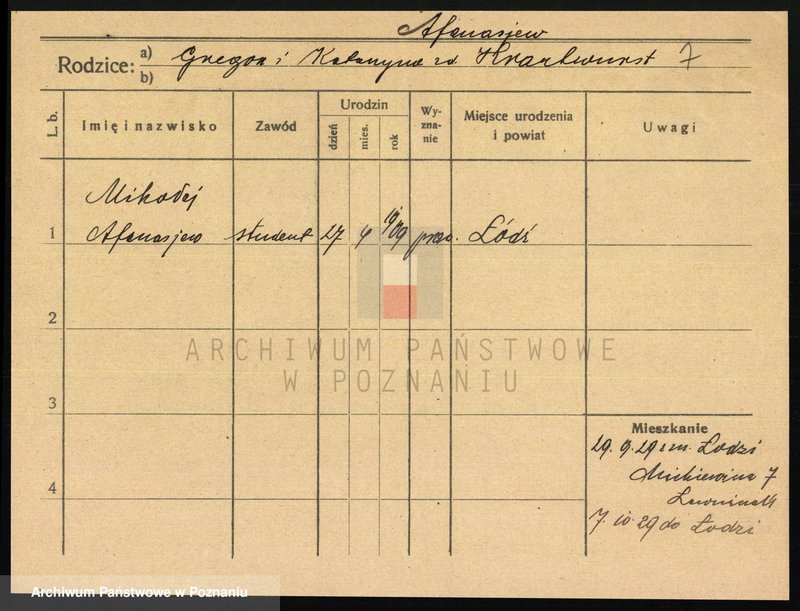 Afanasjew
Rodzice: a) Gregor i Katarzyna zd. Knartwurst 7
b)
L. b.
Imię i nazwisko
Zawód
Urodzin
dzień
mies.
rok
Wy-
zna-
nie
Miejsce urodzenia
i powiat
Uwagi
Mikołaj
1 Afanasjew student 27 4 1909 praw. Łódź
2
ARCHIWUM PAŃSTWOWE
W POZNANIU
3
Mieszkanie
29. 9. 29 z m. Łodzi
4 Mickiewicza 7
7. 10. 29 do Łodzi
Archiwum Państwowe w Poznaniu